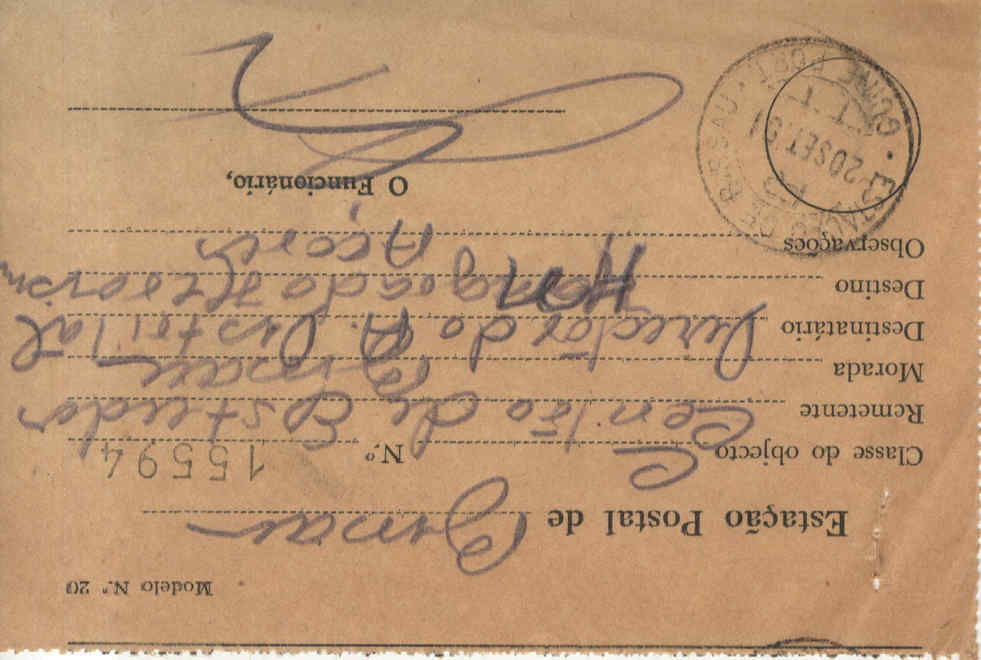 Modelo N.º 20
Estação Postal de Bissau
Classe do objecto C N.º 15594
Remetente Centro de Estudos
Morada Bissau
Destinatário Director do A. Distrital
Destino Angra do Heroísmo
Observações Açores
O Funcionário,
20 SET